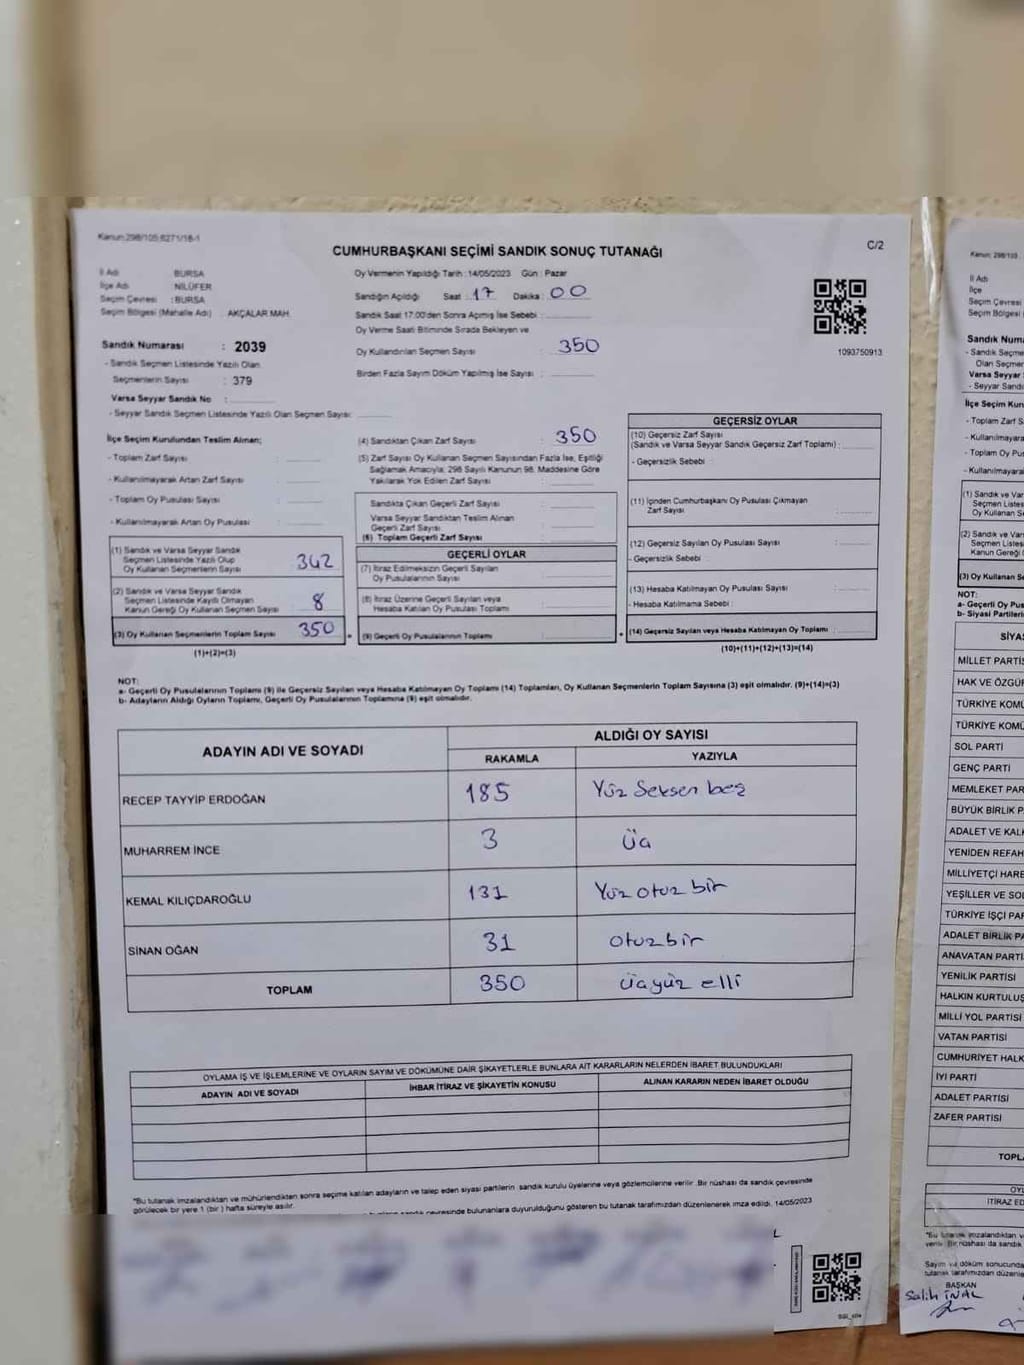 Kanun:298/105;6271/16-1
CUMHURBAŞKANI SEÇİMİ SANDIK SONUÇ TUTANAĞI
C/2
İl Adı BURSA
İlçe Adı NİLÜFER
Seçim Çevresi :BURSA
Seçim Bölgesi (Mahalle Adı) AKÇALAR MAH.
Sandık Numarası : 2039
- Sandık Seçmen Listesinde Yazılı Olan
Seçmenlerin Sayısı : 379
Varsa Seyyar Sandık No :
- Seyyar Sandık Seçmen Listesinde Yazılı Olan Seçmen Sayısı:
Oy Vermenin Yapıldığı Tarih :14/05/2023 Gün : Pazar
Sandığın Açıldığı Saat : 17 Dakika : 00
Sandık Saat 17:00'den Sonra Açımış İse Sebebi :
Oy Verme Saati Bitiminde Sırada Bekleyen ve
Oy Kullandırılan Seçmen Sayısı : 350
Birden Fazla Sayım Döküm Yapılmış İse Sayısı :
1093750913
İlçe Seçim Kurulundan Teslim Alınan;
- Toplam Zarf Sayısı :
- Kullanılmayarak Artan Zarf Sayısı :
- Toplam Oy Pusulası Sayısı :
- Kullanılmayarak Artan Oy Pusulası :
(1) Sandık ve Varsa Seyyar Sandık
Seçmen Listesinde Yazılı Olup
Oy Kullanan Seçmenlerin Sayısı 342
(2) Sandık ve Varsa Seyyar Sandık
Seçmen Listesinde Kayıtlı Olmayan
Kanun Gereği Oy Kullanan Seçmen Sayısı 8
(3) Oy Kullanan Seçmenlerin Toplam Sayısı 350
(1)+(2)=(3)
(4) Sandıktan Çıkan Zarf Sayısı : 350
(5) Zarf Sayısı Oy Kullanan Seçmen Sayısından Fazla İse, Eşitliği
Sağlamak Amacıyla; 298 Sayılı Kanunun 98. Maddesine Göre
Yakılarak Yok Edilen Zarf Sayısı :
Sandıkta Çıkan Geçerli Zarf Sayısı :
Varsa Seyyar Sandıktan Teslim Alınan
Geçerli Zarf Sayısı :
(6) Toplam Geçerli Zarf Sayısı :
GEÇERLİ OYLAR
(7) İtiraz Edilmeksizin Geçerli Sayılan
Oy Pusulalarının Sayısı :
(8) İtiraz Üzerine Geçerli Sayılan veya
Hesaba Katılan Oy Pusulası Toplamı :
(9) Geçerli Oy Pusulalarının Toplamı :
GEÇERSİZ OYLAR
(10) Geçersiz Zarf Sayısı
(Sandık ve Varsa Seyyar Sandık Geçersiz Zarf Toplamı) :
- Geçersizlik Sebebi :
(11) İçinden Cumhurbaşkanı Oy Pusulası Çıkmayan
Zarf Sayısı :
(12) Geçersiz Sayılan Oy Pusulası Sayısı :
- Geçersizlik Sebebi :
(13) Hesaba Katılmayan Oy Pusulası Sayısı :
- Hesaba Katılmama Sebebi :
(14) Geçersiz Sayılan veya Hesaba Katılmayan Oy Toplamı :
(10)+(11)+(12)+(13)=(14)
NOT:
a- Geçerli Oy Pusulalarının Toplamı (9) ile Geçersiz Sayılan veya Hesaba Katılmayan Oy Toplamı (14) Toplamları, Oy Kullanan Seçmenlerin Toplam Sayısına (3) eşit olmalıdır. (9)+(14)=(3)
b- Adayların Aldığı Oyların Toplamı, Geçerli Oy Pusulalarının Toplamına (9) eşit olmalıdır.
ADAYIN ADI VE SOYADI ALDIĞI OY SAYISI
RAKAMLA YAZIYLA
RECEP TAYYİP ERDOĞAN 185 Yüz Seksen beş
MUHARREM İNCE 3 Üç
KEMAL KILIÇDAROĞLU 131 Yüz otuz bir
SİNAN OĞAN 31 otuz bir
TOPLAM 350 Üçyüz elli
OYLAMA İŞ VE İŞLEMLERİNE VE OYLARIN SAYIM VE DÖKÜMÜNE DAİR ŞİKAYETLERLE BUNLARA AİT KARARLARIN NELERDEN İBARET BULUNDUKLARI
ADAYIN ADI VE SOYADI İHBAR İTİRAZ VE ŞİKAYETİN KONUSU ALINAN KARARIN NEDEN İBARET OLDUĞU
*Bu tutanak imzalandıktan ve mühürlendikten sonra seçime katılan adayların ve talep eden siyasi partilerin sandık kurulu üyelerine veya gözlemcilerine verilir. Bir nüshası da sandık çevresinde
görülecek bir yere 1 (bir ) hafta süreyle asılır.
çevresinde bulunanlara duyurulduğunu gösteren bu tutanak tarafımızdan düzenlenerek imza edildi. 14/05/2023
Kanun: 298/105
İl Adı
İlçe
Seçim Çevresi
Seçim Bölgesi
Sandık Numa
- Sandık Seçme
Olan Seçmen
Varsa Seyyar
- Seyyar Sandık
İlçe Seçim Kuru
- Toplam Zarf S
- Kullanılmayara
- Toplam Oy Pus
- Kullanılmayara
(1) Sandık ve Var
Seçmen Listes
Oy Kullanan S
(2) Sandık ve Vars
Seçmen Listes
Kanun Gereği
(3) Oy Kullanan Se
NOT:
a- Geçerli Oy Pus
b- Siyasi Partilerin
SİYAS
MİLLET PARTİS
HAK VE ÖZGÜR
TÜRKİYE KOMÜ
TÜRKİYE KOMÜ
SOL PARTİ
GENÇ PARTİ
MEMLEKET PAR
BÜYÜK BİRLİK P
ADALET VE KALK
YENİDEN REFAH
MİLLİYETÇİ HARE
YEŞİLLER VE SO
TÜRKİYE İŞÇİ PAR
ADALET BİRLİK PA
ANAVATAN PARTİ
YENİLİK PARTİSİ
HALKIN KURTULUŞ
MİLLİ YOL PARTİSİ
VATAN PARTİSİ
CUMHURİYET HALK
İYİ PARTİ
ADALET PARTİSİ
ZAFER PARTİSİ
TOPLA
OYL
İTİRAZ ED
*Bu tutanak imzalandıktan ve
verilir. Bir nüshası da sandık
Sayım ve döküm sonucunda
tutanak tarafımızdan düzenle
BAŞKAN
Salih İNAL